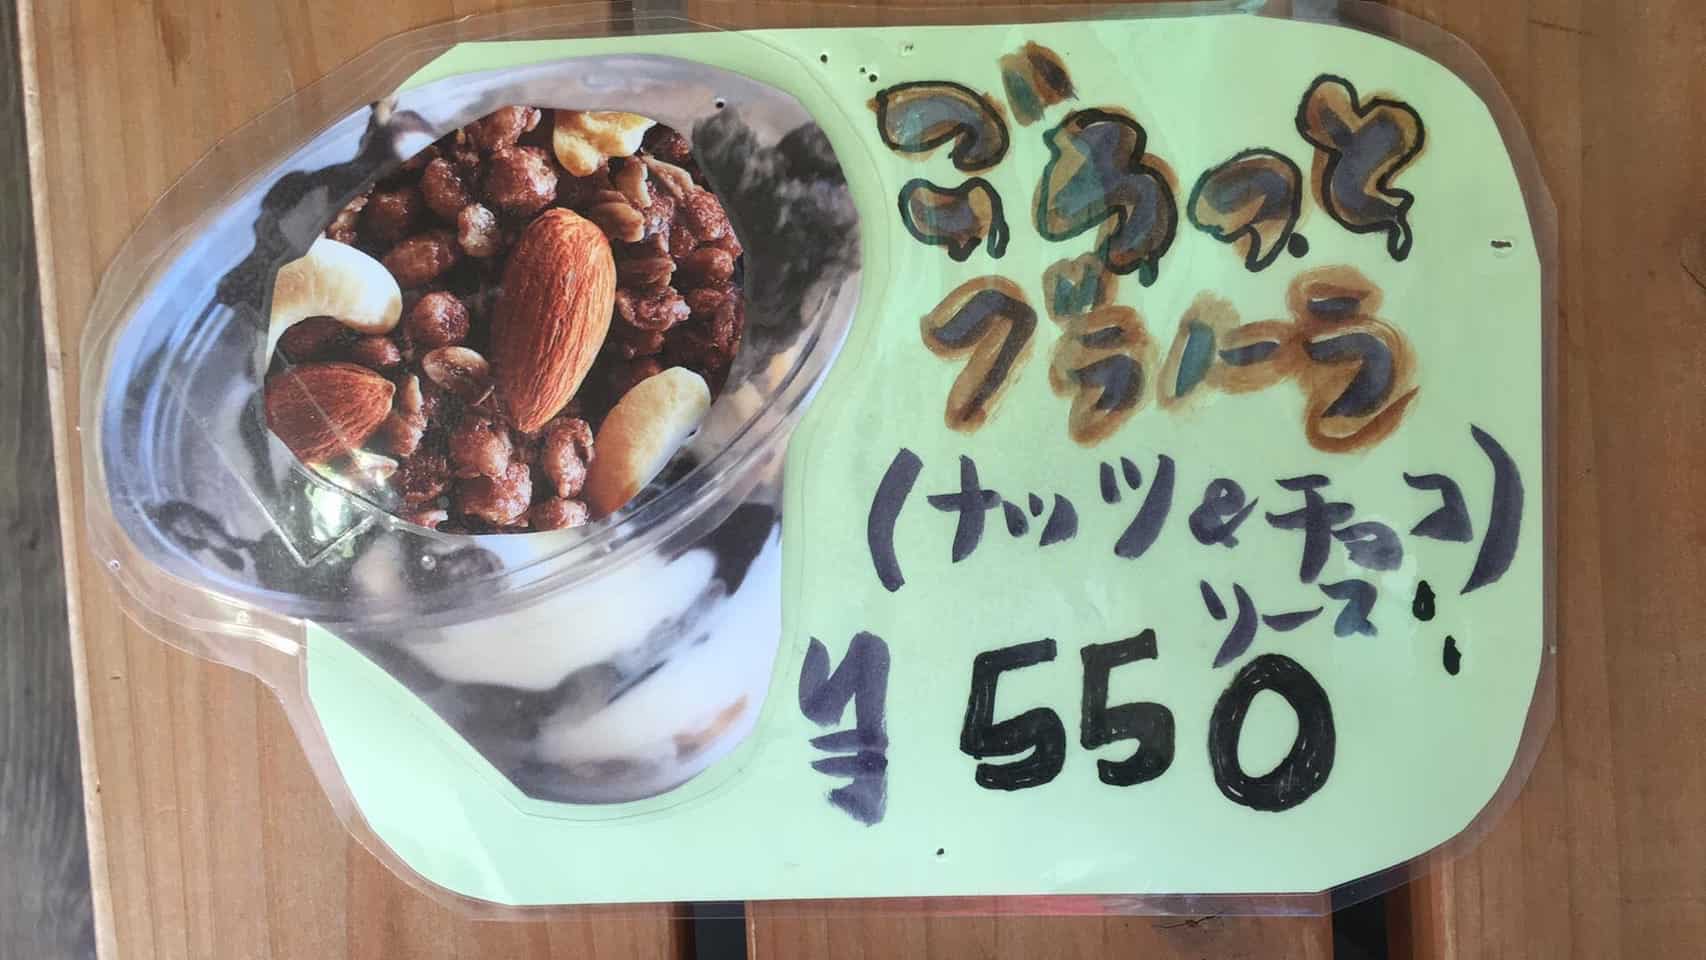 ごろっと
グラノーラ
(ナッツ&チョコ
ソース)
¥550